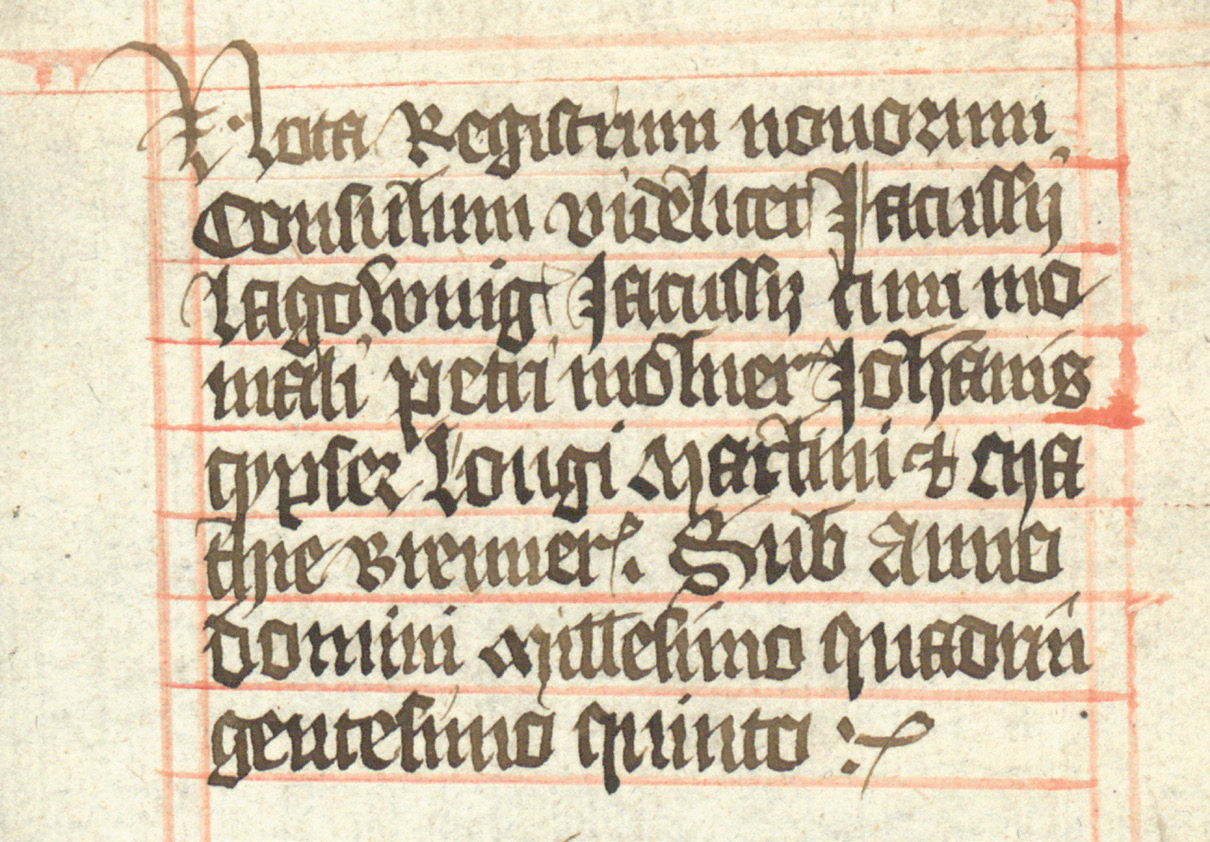 Nota Registrum nouorum
Consulum videlicet Jacussii
Lagownig Jacussii cum mo
mali petri molner Johanis
gypser Longi Martini et Ma
thie Brenner. Sub Anno
domini Millesimo quadrin
gentesimo quinto :